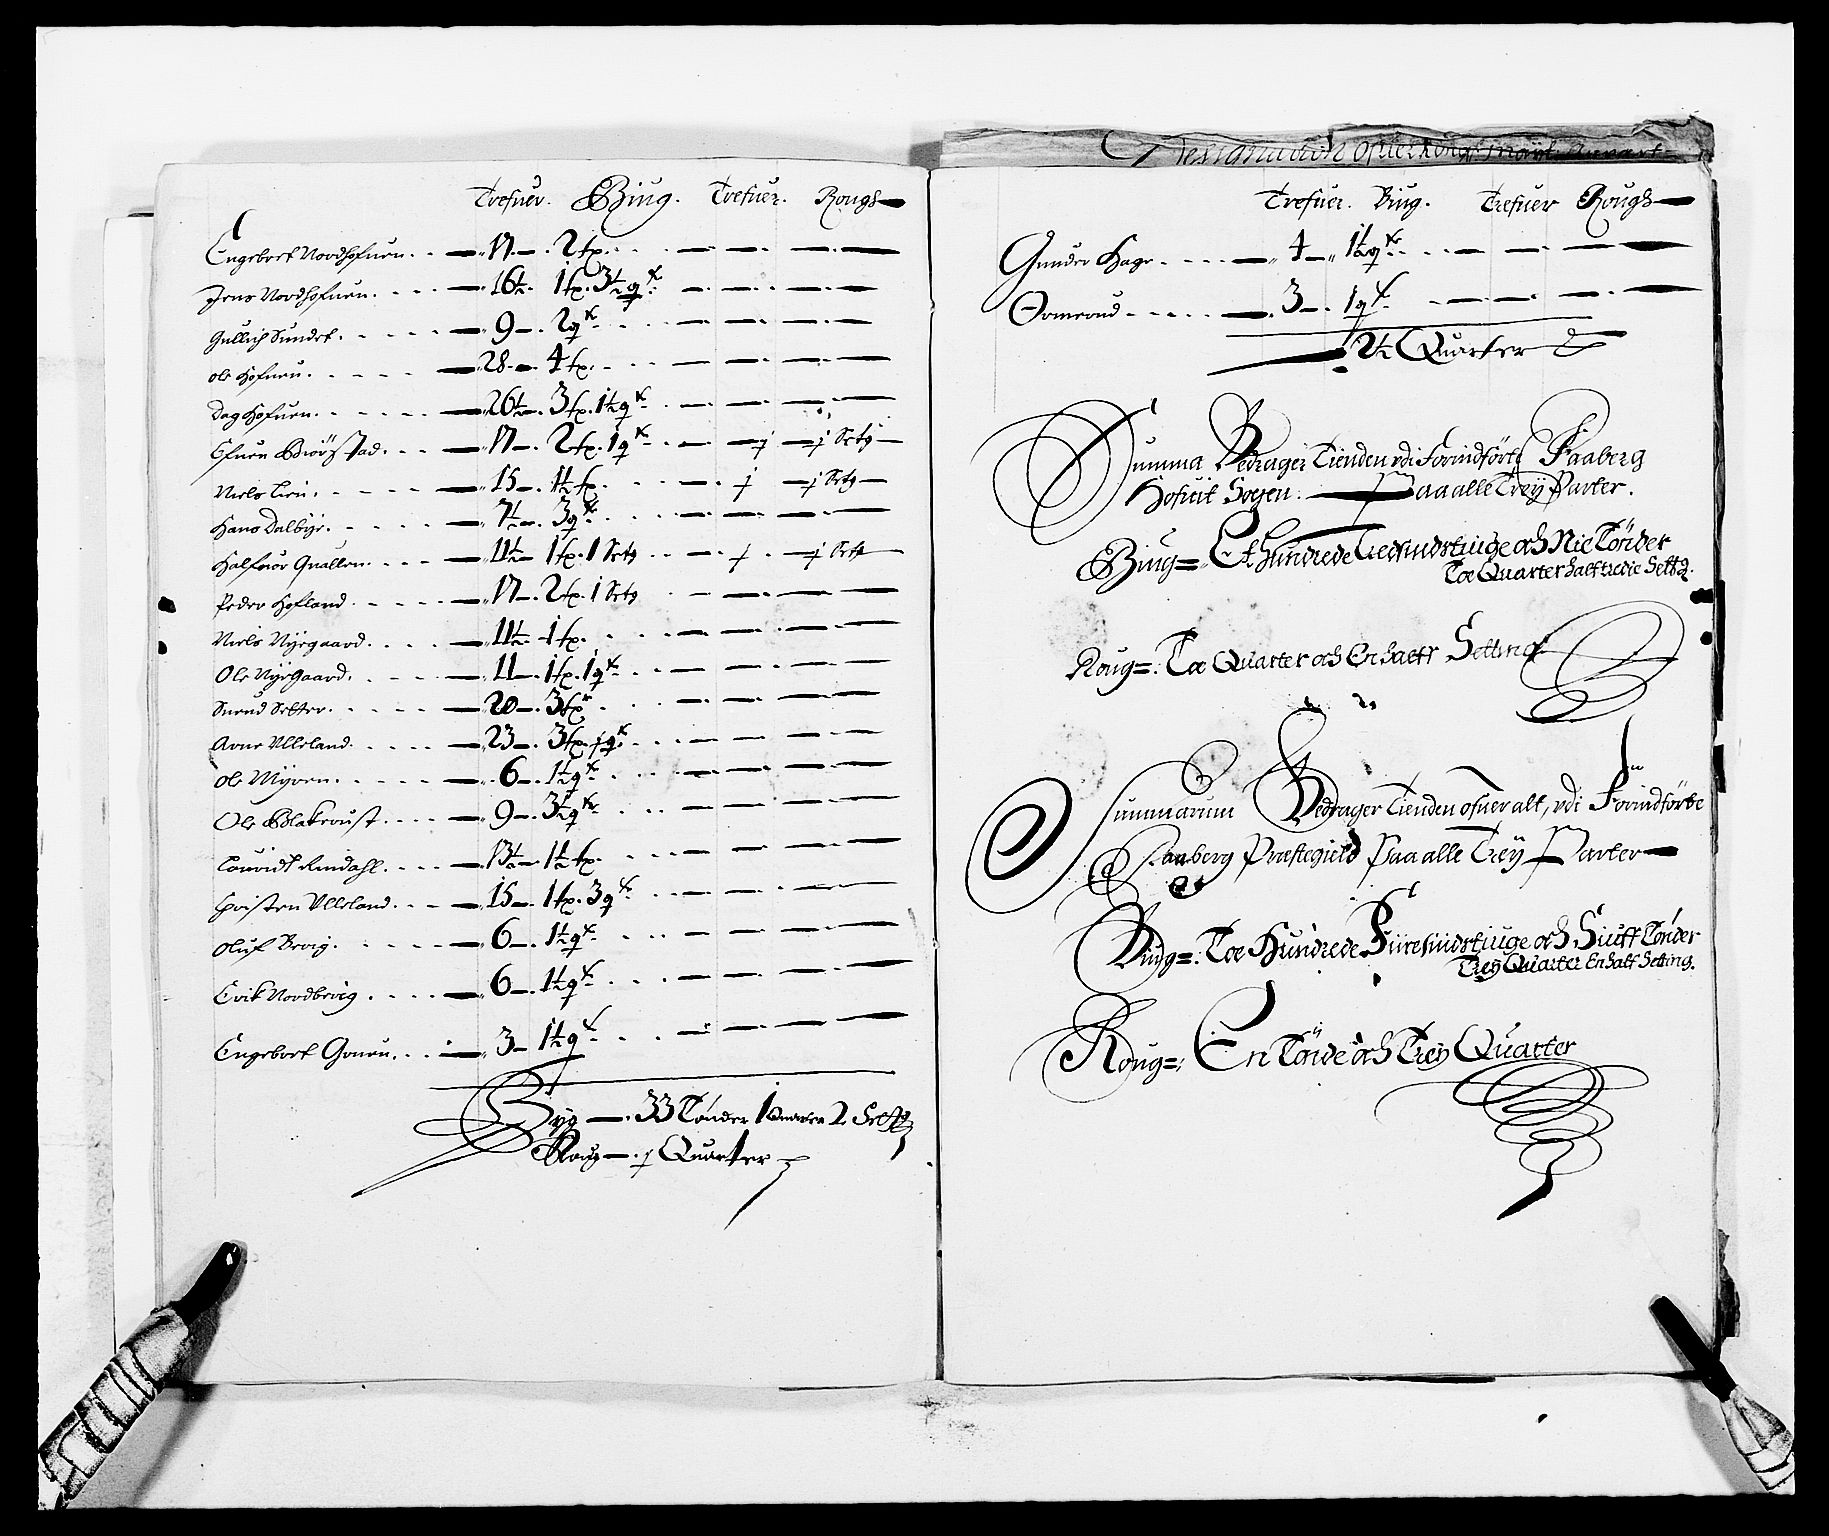 Trefuer. Biug. Trefuer. Rough
Engebret Nordhofuen. 17. 2 fx.
Jens Nordhofuen. 16½. 1 fx. 3½ qr
Gullich Sundet. 9. 2 qr
Ole Hofuen. 28. 4 fx.
Dag Hofuen. 26½. 3 fx. 1½ qr
Efuen Biörstad. 17. 2 fx. 1 qr j j Setg
Niels Lien. 15. 1½ fx. j j Setg
Hans Dalbye. 7½. 3 qr
Halfuor Quallen. 11½ 1 fx. 1 Setg j j Setg
Peder Hofland. 17. 2 fx. 1 Setg
Niels Nyegaard. 11½ 1 fx.
Ole Nyegaard. 11. 1 fx. 1 qr
Suend Setter. 20. 3 fx
Arne Ulleland. 23. 3 fx. j qr
Ole Myren. 6. 1½ qr
Ole Blakrust. 9. 3½ qr
Rindahl. 13½. 1½ fx.
Christen Ulleland. 15. 1 fx. 3 qr
Oluf Brvig. 6. 1½ qr
Erik Nordbrvig. 6. 1½ qr
Engebret Gonen. 3 1½ qr
Byg. 33 Tönder 1 Quarter 2 Settg
Roug. j Quarter
Designation ofuer Kong. Mayt.
Trefuer. Biug. Trefuer Rough
Gunder Hage. 4. 1½ qr
Ormroud. 3. 1 qr
2½ Quarter
Summa Bedrager Tienden udi Forindförte Faaberg
Hofuit Sogen. Paa alle Trey Parter.
Biug =. Et hundrede Tredsindstiuge och Nie Tönder
Toe Quarter half tredie Settg.
Roug =. Toe Quarter och En halff Setting
Summarum Bedrager Tienden ofuer alt, udi Forindförte
Faaberg Prestegield Paa alle Trey Parter
Biug =. Toe Hundrede Fiiresindstiuge och Siuff Tönder
Trey Quarter En half Setting.
Roug =. En Tönde och Trey Quarter